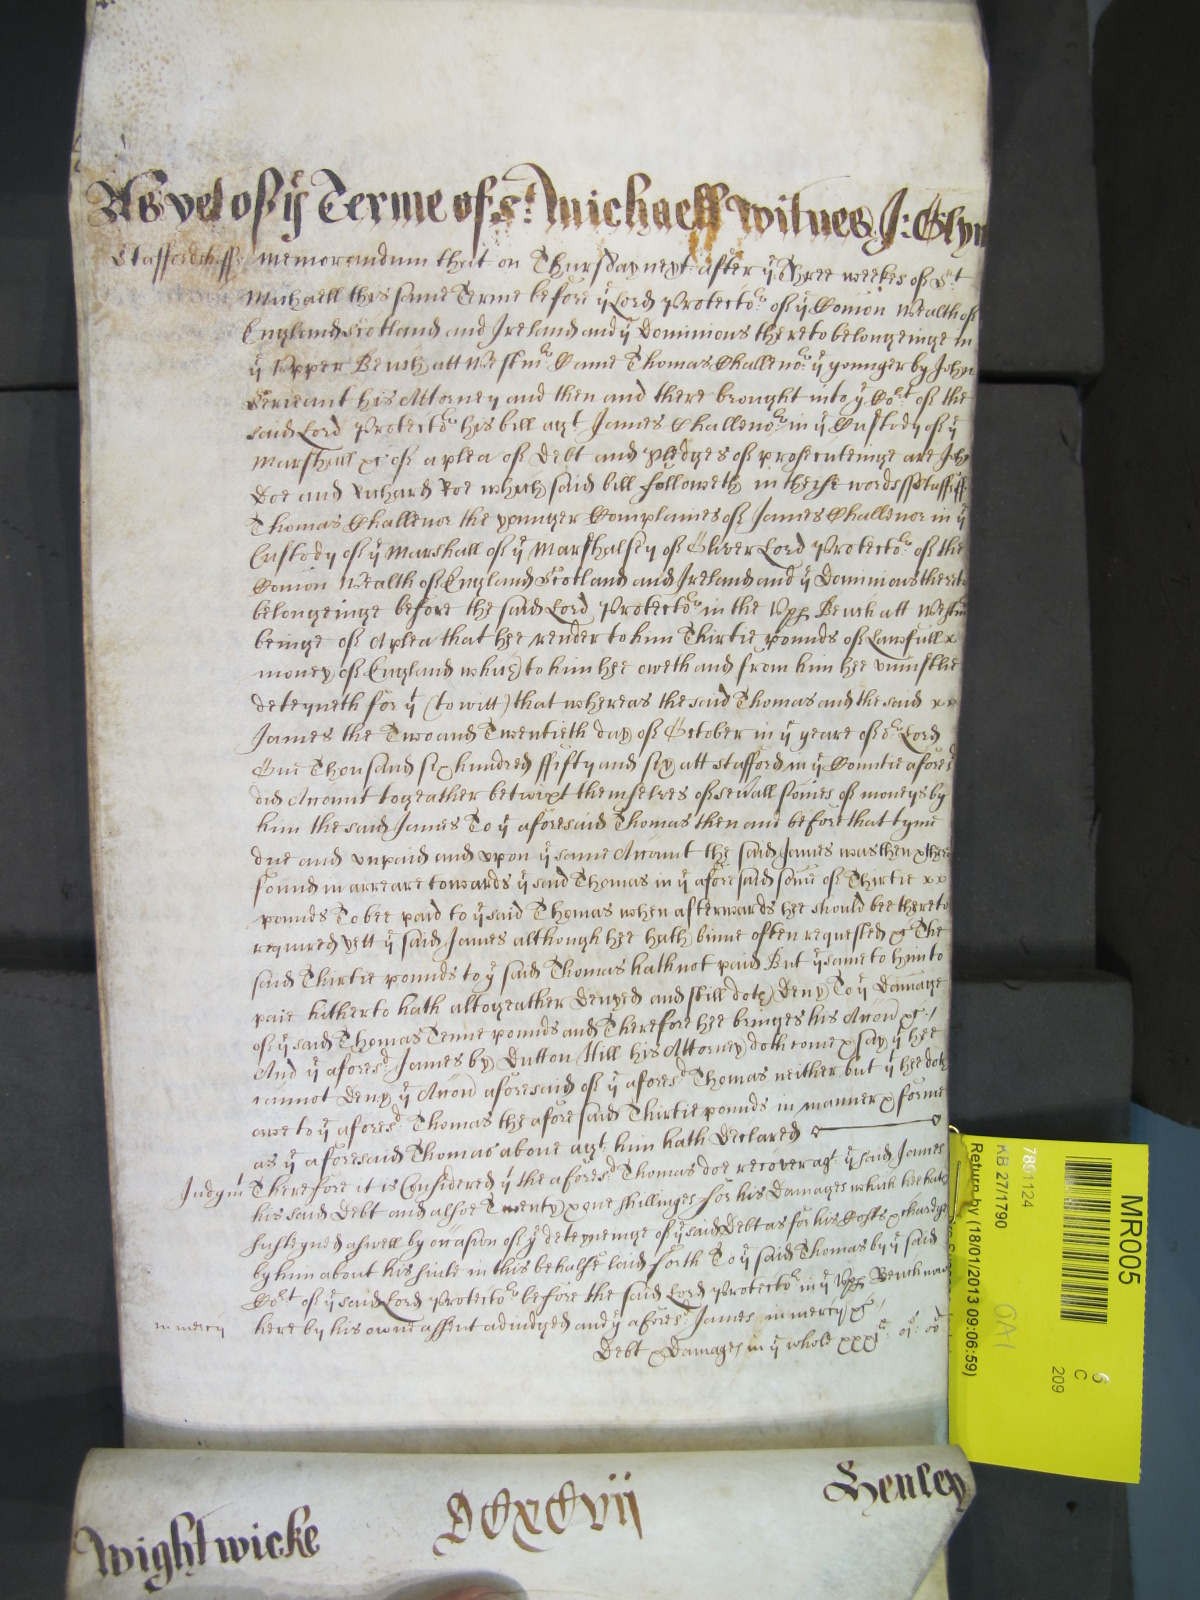 As yet of yͤ Terme of Sᵗ Michaell Witnes J: Glyn
Staffordsheire Memorandum that on Thursday next after yͤ Three weekes of Sᵗ
Michaell this same Terme before yͤ Lord Protectoʳ of yͤ Comon Wealth of
England Scotland and Ireland and yͤ Dominions thereto belongeinge in
yͤ Upper Bench att Westmʳ Came Thomas Challenoʳ yͤ younger by John
Serieant his Attorney and then and there brought into yͤ Coʳᵗ of the
said Lord Protectoʳ his bill agᵗ James Challenoʳ in yͤ Custody of yͤ
Marshall &c of a plea of Debt and pledges of prosecuteinge are John
Doe and Richard Roe which said bill followeth in these words ss Staff ss
Thomas Challenor the younger Complaines of James Challenor in yͤ
Custody of yͤ Marshall of yͤ Marshalsey of Oliver Lord Protectoʳ of the
Comon Wealth of England Scotland and Ireland and yͤ Dominions thereto
belongeinge before the said Lord Protectoʳ in the Upp Bench att Westmʳ
beinge of A plea that hee render to him Thirtie pounds of Lawfull x
money of England which to him hee oweth and from him hee uniustlie
deteyneth for yᵗ (to witt) that whereas the said Thomas and the said xx
James the Two and Twentieth day of October in yͤ yeare of oʳ Lord
One Thousand six hundred ffifty and six att Stafford in yͤ Countie aforesᵈ
did Account togeather betwixt themselves of seuall somes of moneys by
him the said James To yͤ aforesaid Thomas then and before that tyme
due and unpaid and upon yͤ same Account the said James was then & there
found in arreare towards yͤ said Thomas in yͤ aforesaid some of Thirtie xx
pounds To bee paid to yͤ said Thomas when afterwards hee should bee thereto
required yett yͤ said James although hee hath binne often requested &c The
said Thirtie pounds to yͤ said Thomas hath not paid But yͤ same to him to
paie hitherto hath altogeather Denyed and still doth Deny To yͤ Damage
of yͤ said Thomas Tenne pounds and Therefore hee bringes his Accon &c /
And yͤ aforesᵈ James by Dutton Hill his Attorney doth come & say yᵗ hee
cannot Deny yͤ Accon aforesaid of yͤ aforesᵈ Thomas neither but yᵗ hee doth
owe to yͤ aforesᵈ Thomas the afore said Thirtie pounds in manner & forme
as yͤ aforesaid Thomas above agᵗ him hath Declared
Judgmᵗ Therefore it is Considered yᵗ the aforesᵈ Thomas doe recover agᵗ yͤ said James
his said Debt and alsoe Twenty & one shillinges for his Damages which hee hath
susteyned aswell by occasion of yͤ deteyneinge of yͤ said Debt as for his Costs & chardges
by him about his suite in this behalfe laid forth To yͤ said Thomas by yͤ said
Coʳᵗ of yͤ said Lord Protectoʳ before the said Lord Protectoʳ in yͤ Upp Bench now
in mercy here by his owne assent adiudged and yͤ aforesᵈ James in mercy &c /
Debt & Damages in yͤ whole xxxjˡⁱ: 0jˢ: 00ᵈ
Wightwicke DCCXCVii Henley
MR005
209
C
6
7891124
KB 27/1790
Return by (18/01/2013 09:06:59)